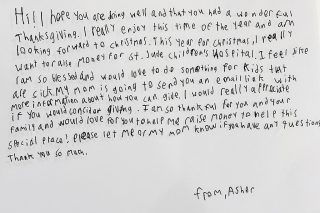 Hi! I hope you are doing well and that you had a wonderful
Thanksgiving. I really enjoy this time of the year and am
looking forward to christmas. This year for christmas, I really
want to raise money for St. Jude Children's Hospital. I feel like
I am so blessed and would love to do something for kids that
are sick. My mom is going to send you an email link with
more information about how you can give. I would really appreciate
if you would consider giving. I am so thankful for you and your
family and would love for you to help me raise money to help this
special place! Please let me or my mom know if you have any questions.
Thank you so much.
from, Asher